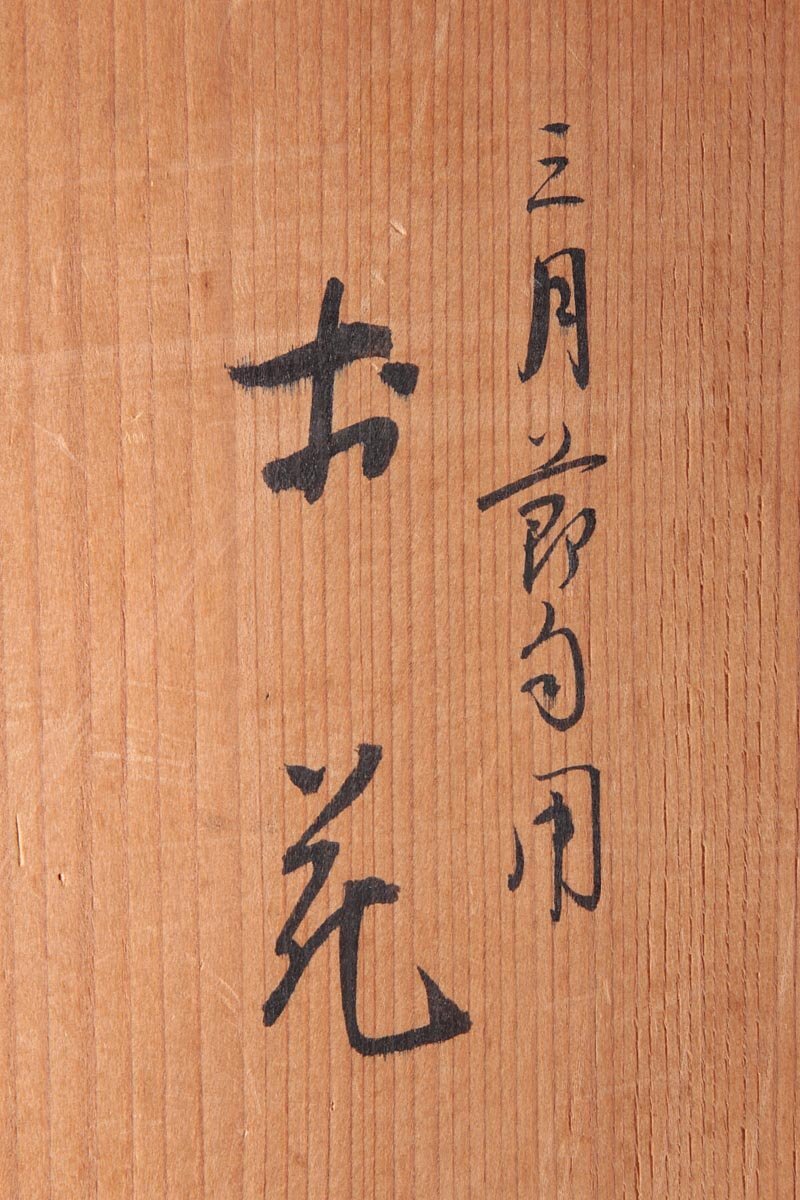 三月節句用
お花